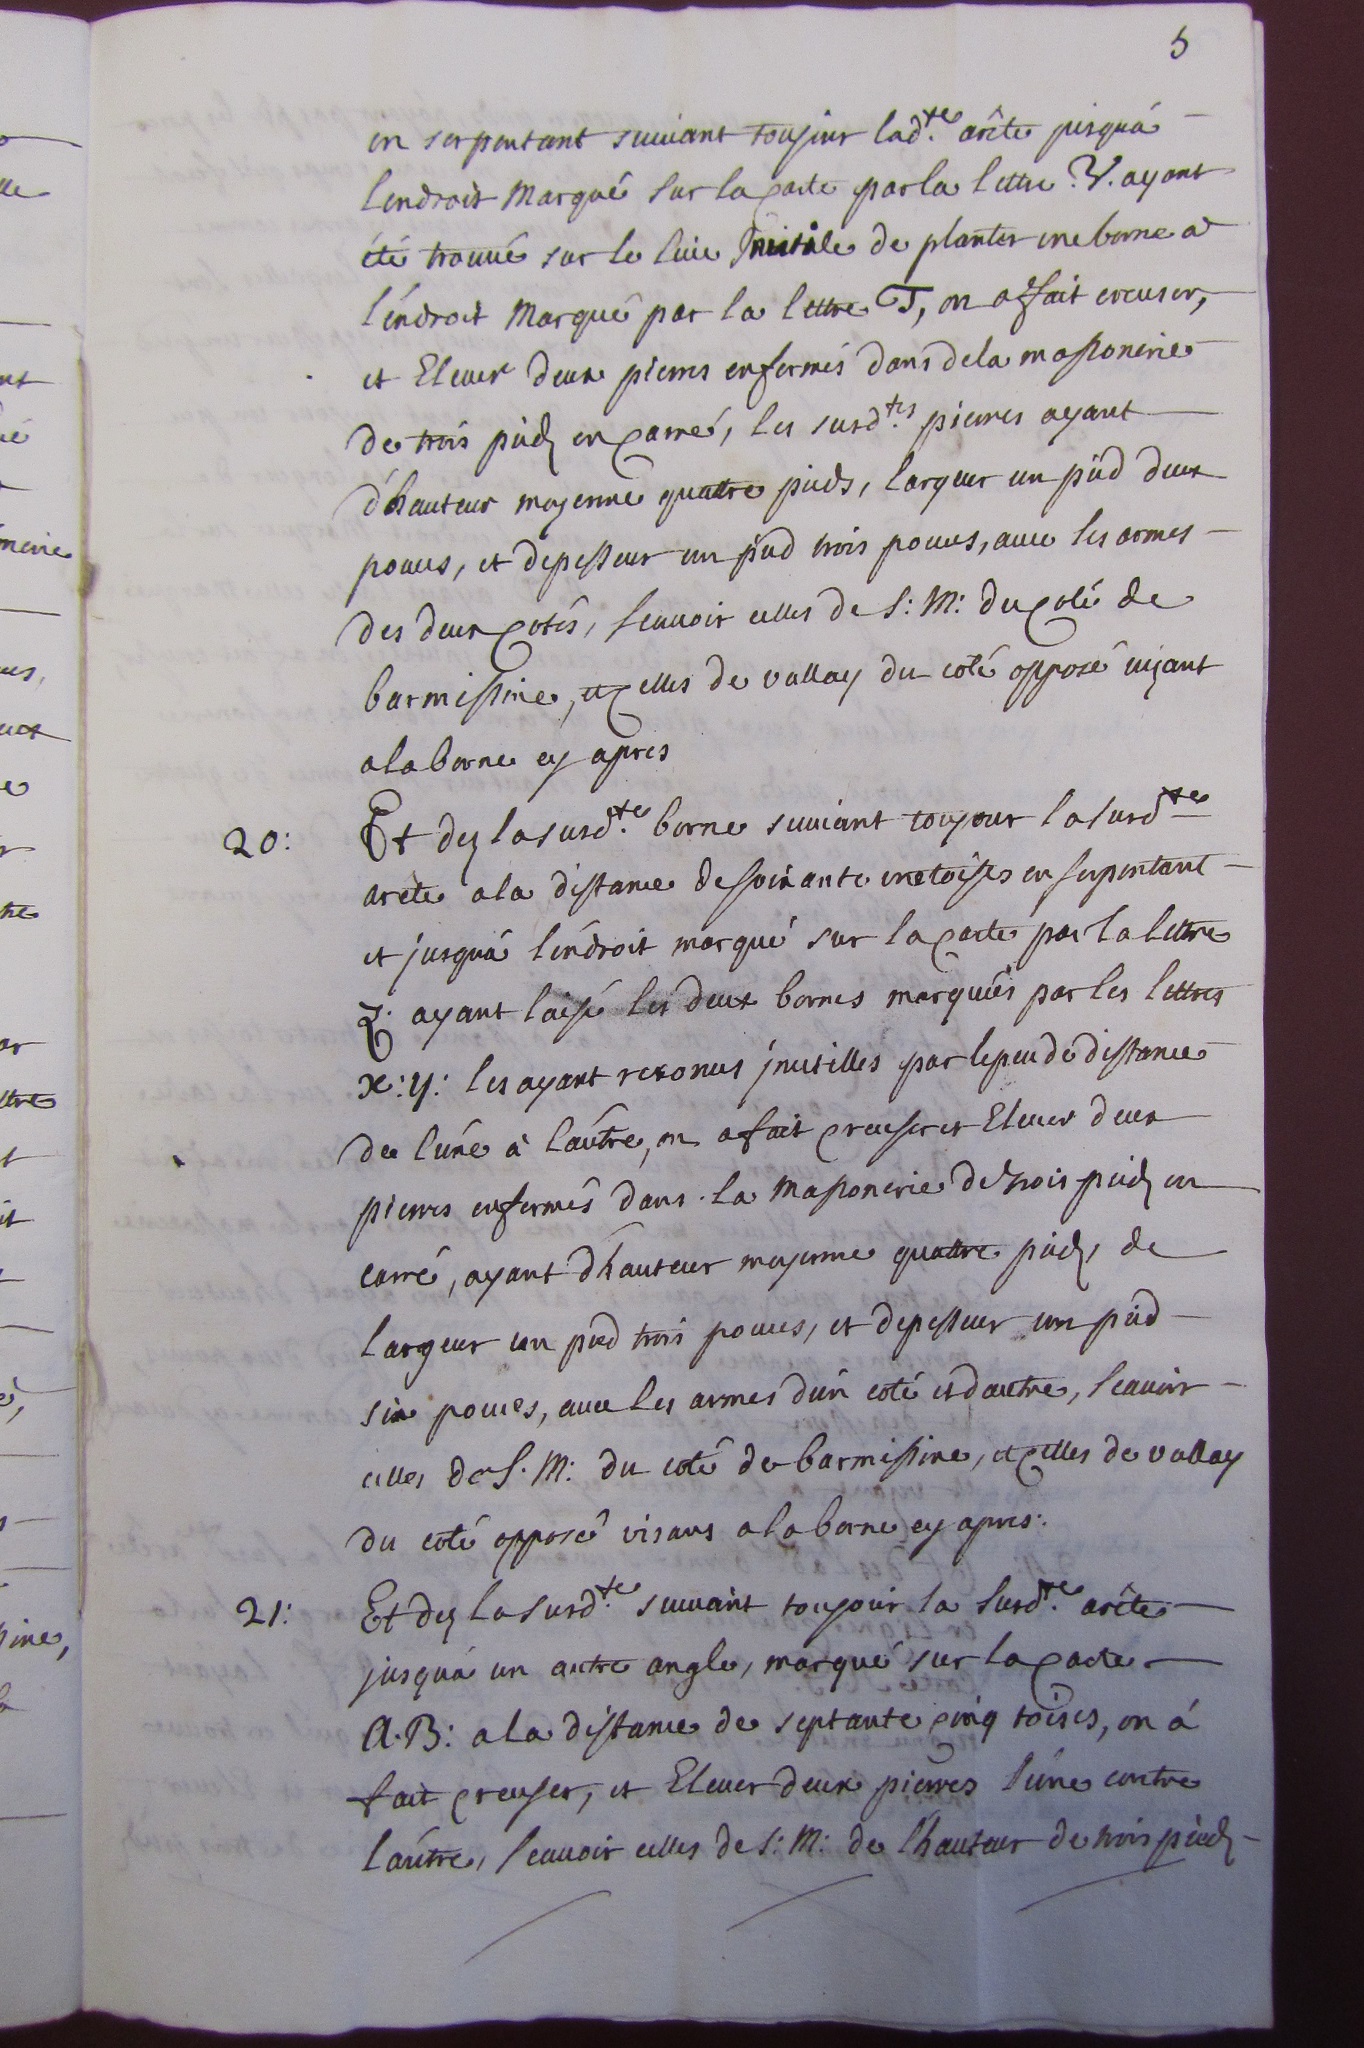 5
en serpentant suivant toujour lad.te arête jusquá
lendroit Marqué sur la Carte par la lettre V. ayant
été trouué sur le lieu Jnutile de planter une borne a
l'éndroit Marqué par la lettre T, on a fait creuser,
et Eleuer deux pierres enfermés dans de la massonerie
de trois pieds en Carré, les surd.tes pierres ayant
d'hauteur moyenne quattre pieds, largeur un pied deux
pouces, et depesseur un pied trois pouces, auec les armes
des deux Cotés, sçauoir celles de S: M: du Coté de
barmissine, et Celles de vallay du coté opposé uisant
a la borne cy apres
20: Et dez la surd.te borne suiuant toujour la surd.te
arete a la distance de soixante une toises en serpentant
et jusquá léndroit marqué sur la Carte par la lettre
Z. ayant laissé les deux bornes marquées par les lettres
x: y: les ayant reconus jnutilles par le peu de distance
de l'une à l'aútre, on a fait creuser et Eleuer deux
pierres enfermés dans la Massonerie de trois pieds en
carré, ayant d'háuteur moyenne quattre pieds, de
largeur un pied trois pouces, et depesseur un pied
six pouces, auec les armes d'un coté et dautre, scauoir
celles de S. M: du coté de barmissine, et Celles de vallay
du coté opposé visans a la borne cy apres:
21: Et dez la surd.te suiuant toujour la surd.te arête
jusquá un autre angle, marqué sur la Carte
A.B: a la distance de septante Cinq toises, on á
fait Creuser, et Eleuer deux pierres lúne contre
laútre, scauoir celles de S: M: de lhauteur de trois pieds